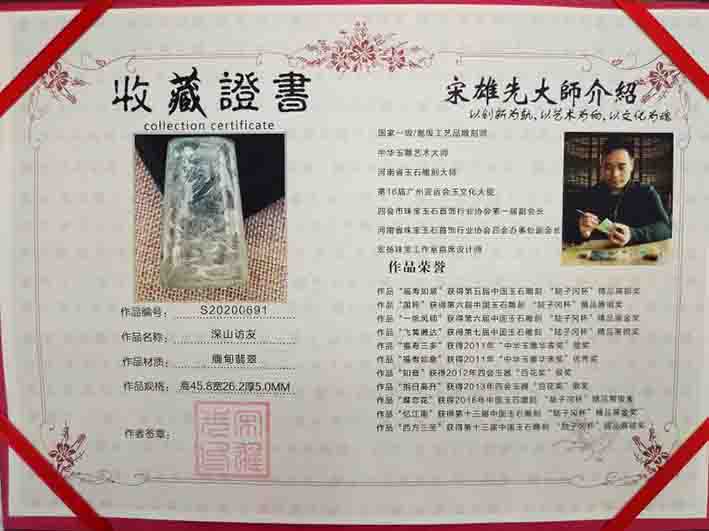 收藏證書
collection certificate
作品编号: S20200691
作品名称: 深山访友
作品材质: 缅甸翡翠
作品规格: 高45.8宽26.2厚5.0MM
作者签章:
宋雄先大師介紹
以创新为轨,以艺术为向,以文化为魂
国家一级/高级工艺品雕刻师
中华玉雕艺术大师
河南省玉石雕刻大师
第16届广州亚运会玉文化大使
四会市珠宝玉石首饰行业协会第一届副会长
河南省珠宝玉石首饰行业协会四会办事处副会长
宏扬珠宝工作室首席设计师
作品荣誉
作品“福寿如意”获得第五届中国玉石雕刻“陆子冈杯”精品铜奖
作品“国粹”获得第六届中国玉石雕刻“陆子冈杯”精品展银奖
作品“一帆风顺”获得第六届中国玉石雕刻“陆子冈杯”精品展金奖
作品“飞黄腾达”获得第七届中国玉石雕刻“陆子冈杯”精品展银奖
作品“福寿三多”获得2011年“中华玉雕华表奖”银奖
作品“福寿如意”获得2011年“中华玉雕华表奖”优秀奖
作品“如意”获得2012年四会玉器“百花奖”银奖
作品“指日高升”获得2013年四会玉器“百花奖”银奖
作品“蝶恋花”获得2016年中国玉石雕刻“陆子冈杯”精品展银奖
作品“忆江南”获得第十三届中国玉石雕刻“陆子冈杯”精品展金奖
作品“西方三圣”获得第十三届中国玉石雕刻“陆子冈杯”精品展银奖